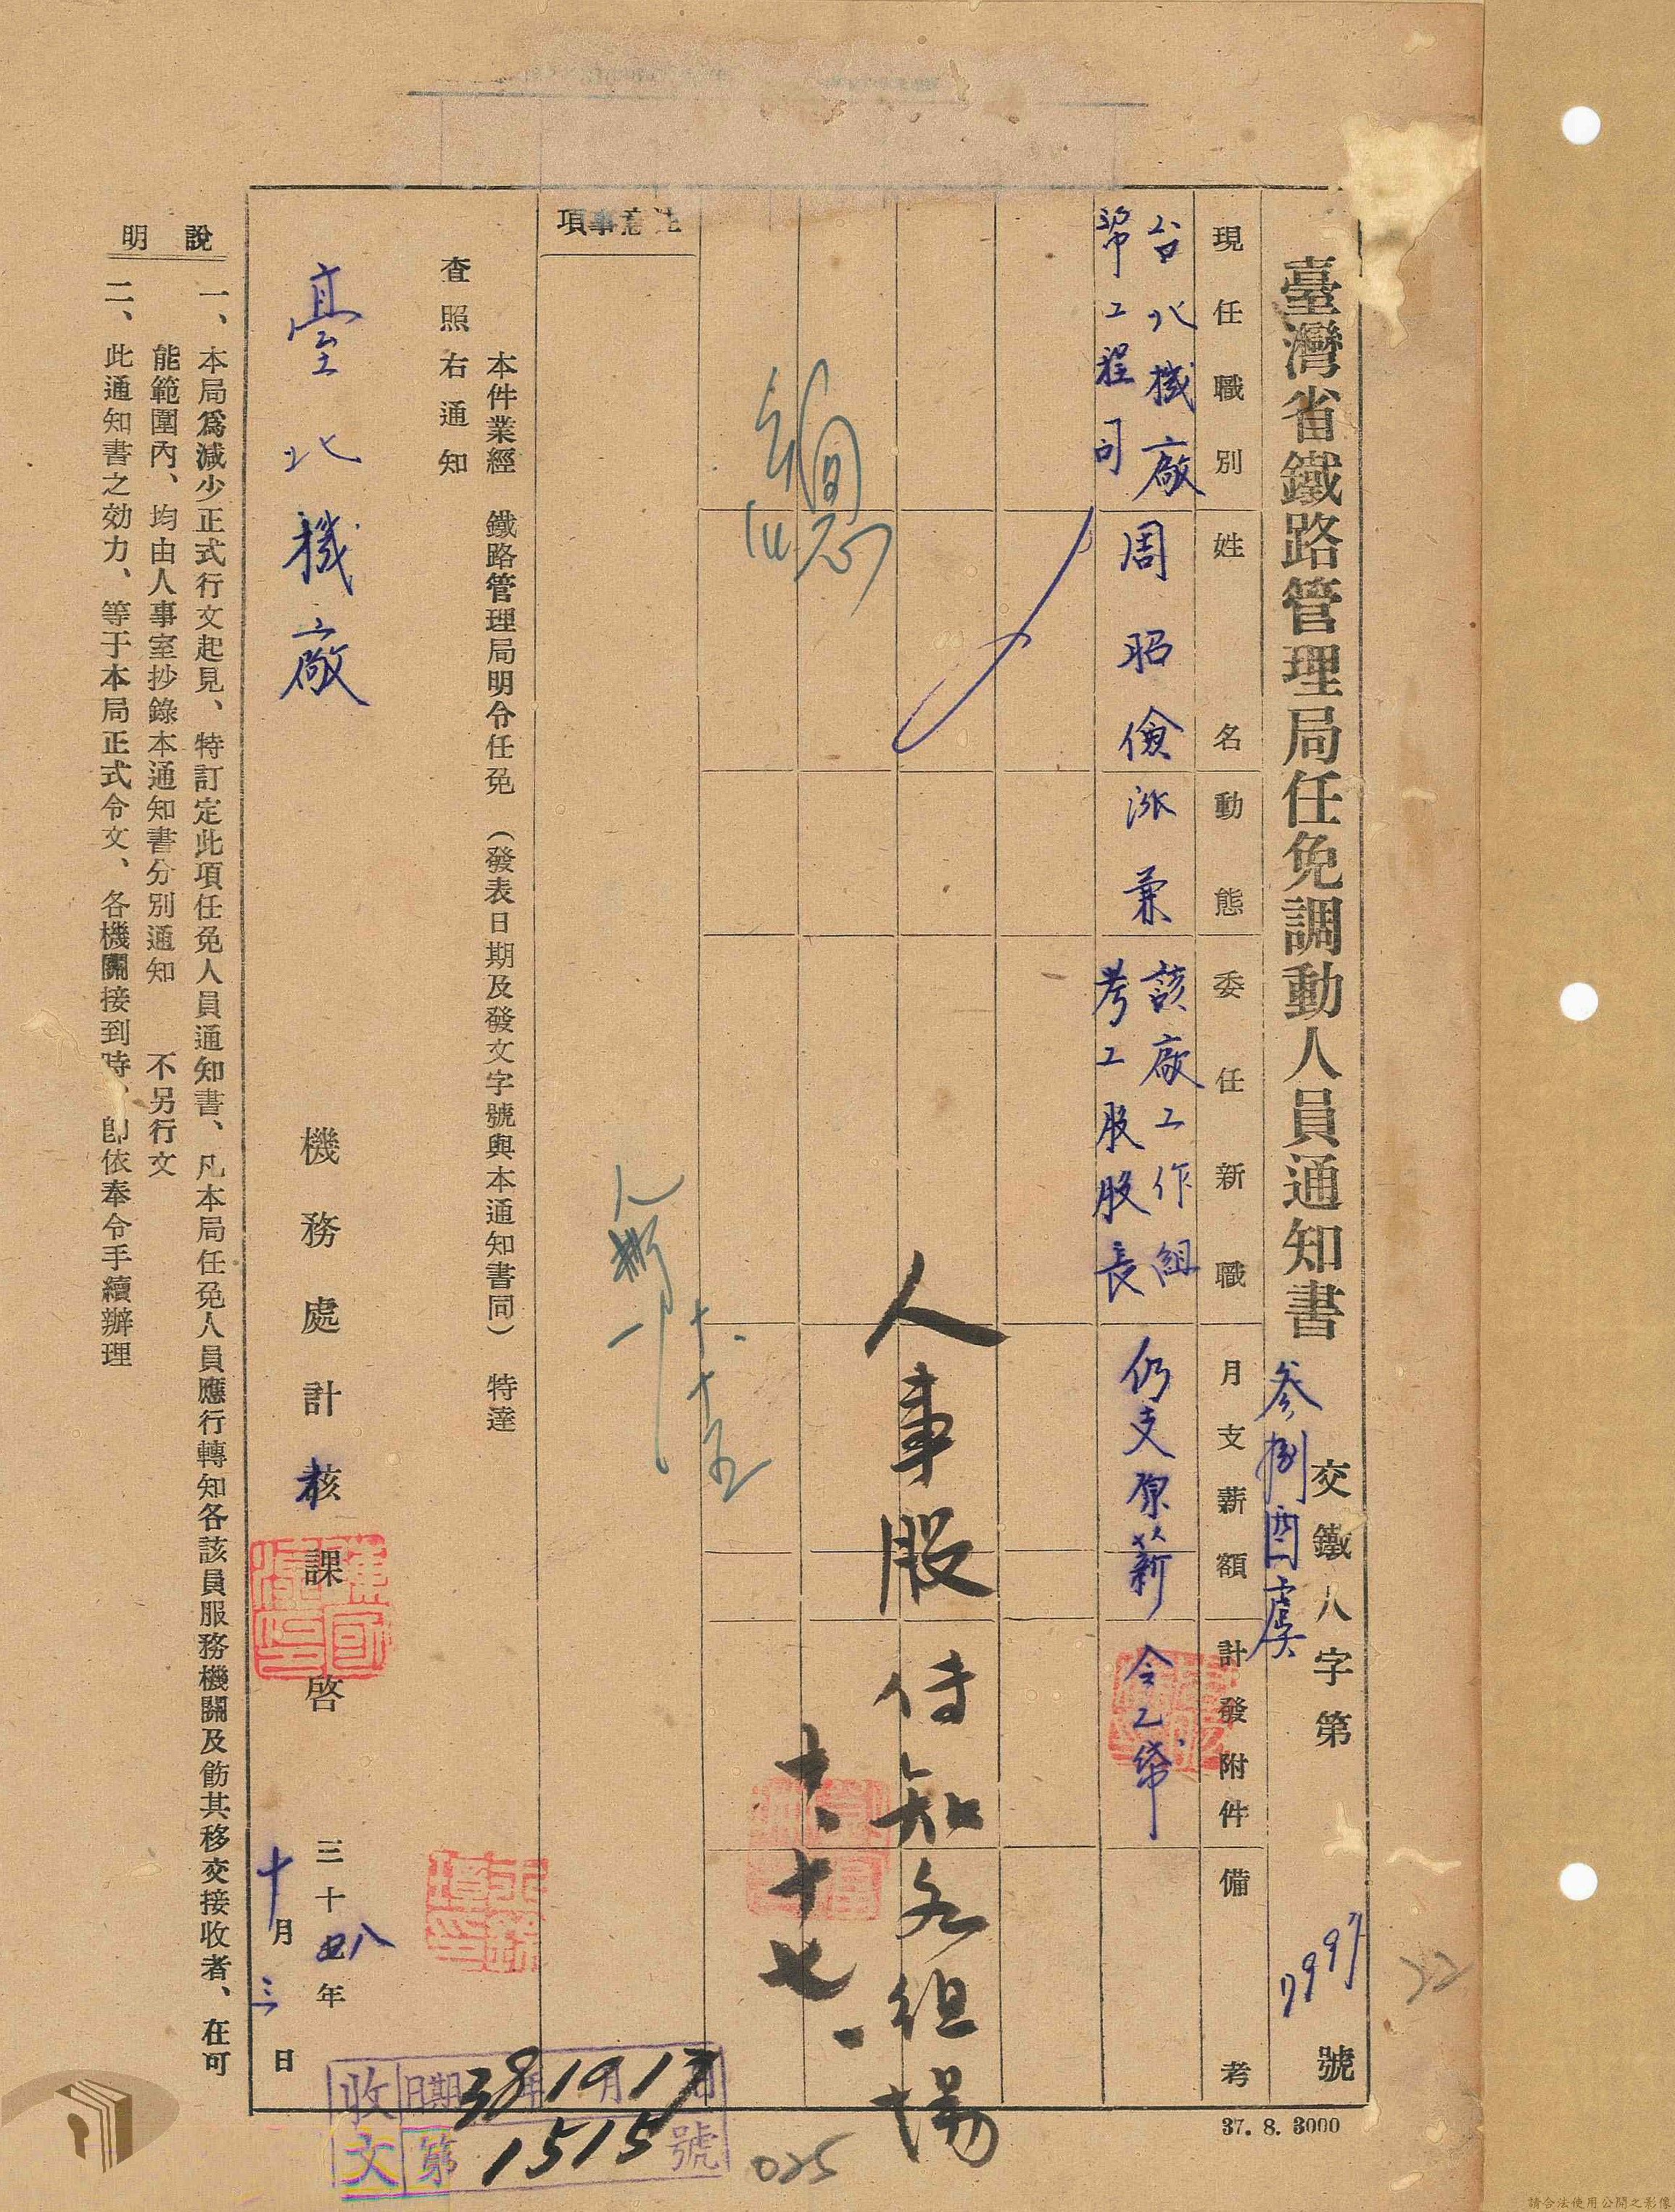 臺灣省鐵路管理局任免調動人員通知書
交鐵人字第
號
叁捌酉虞
現任職別
姓名
動態
委任新職
月支薪額
計發附件
備考
台北機廠
幫工程司
周昭儉
派兼
該廠工作組
考工股股長
仍支原薪
令乙帋
人事股 傳知各組場
十、十七、
注意事項
本件業經 鐵路管理局明令任免 (發表日期及發文字號與本通知書同) 特達
查照右通知
臺北機廠
機務處計核課啓
三十八年
十月三日
說明
一、本局爲減少正式行文起見、特訂定此項任免人員通知書、凡本局任免人員應行轉知各該員服務機關及飭其移交接收者、在可
能範圍內、均由人事室抄錄本通知書分別通知 不另行文
二、此通知書之効力、等于本局正式令文、各機關接到時、卽依奉令手續辦理
收文
日期38年10月17日
第1515號
025
22
37. 8. 3000
請合法使用公開之影像